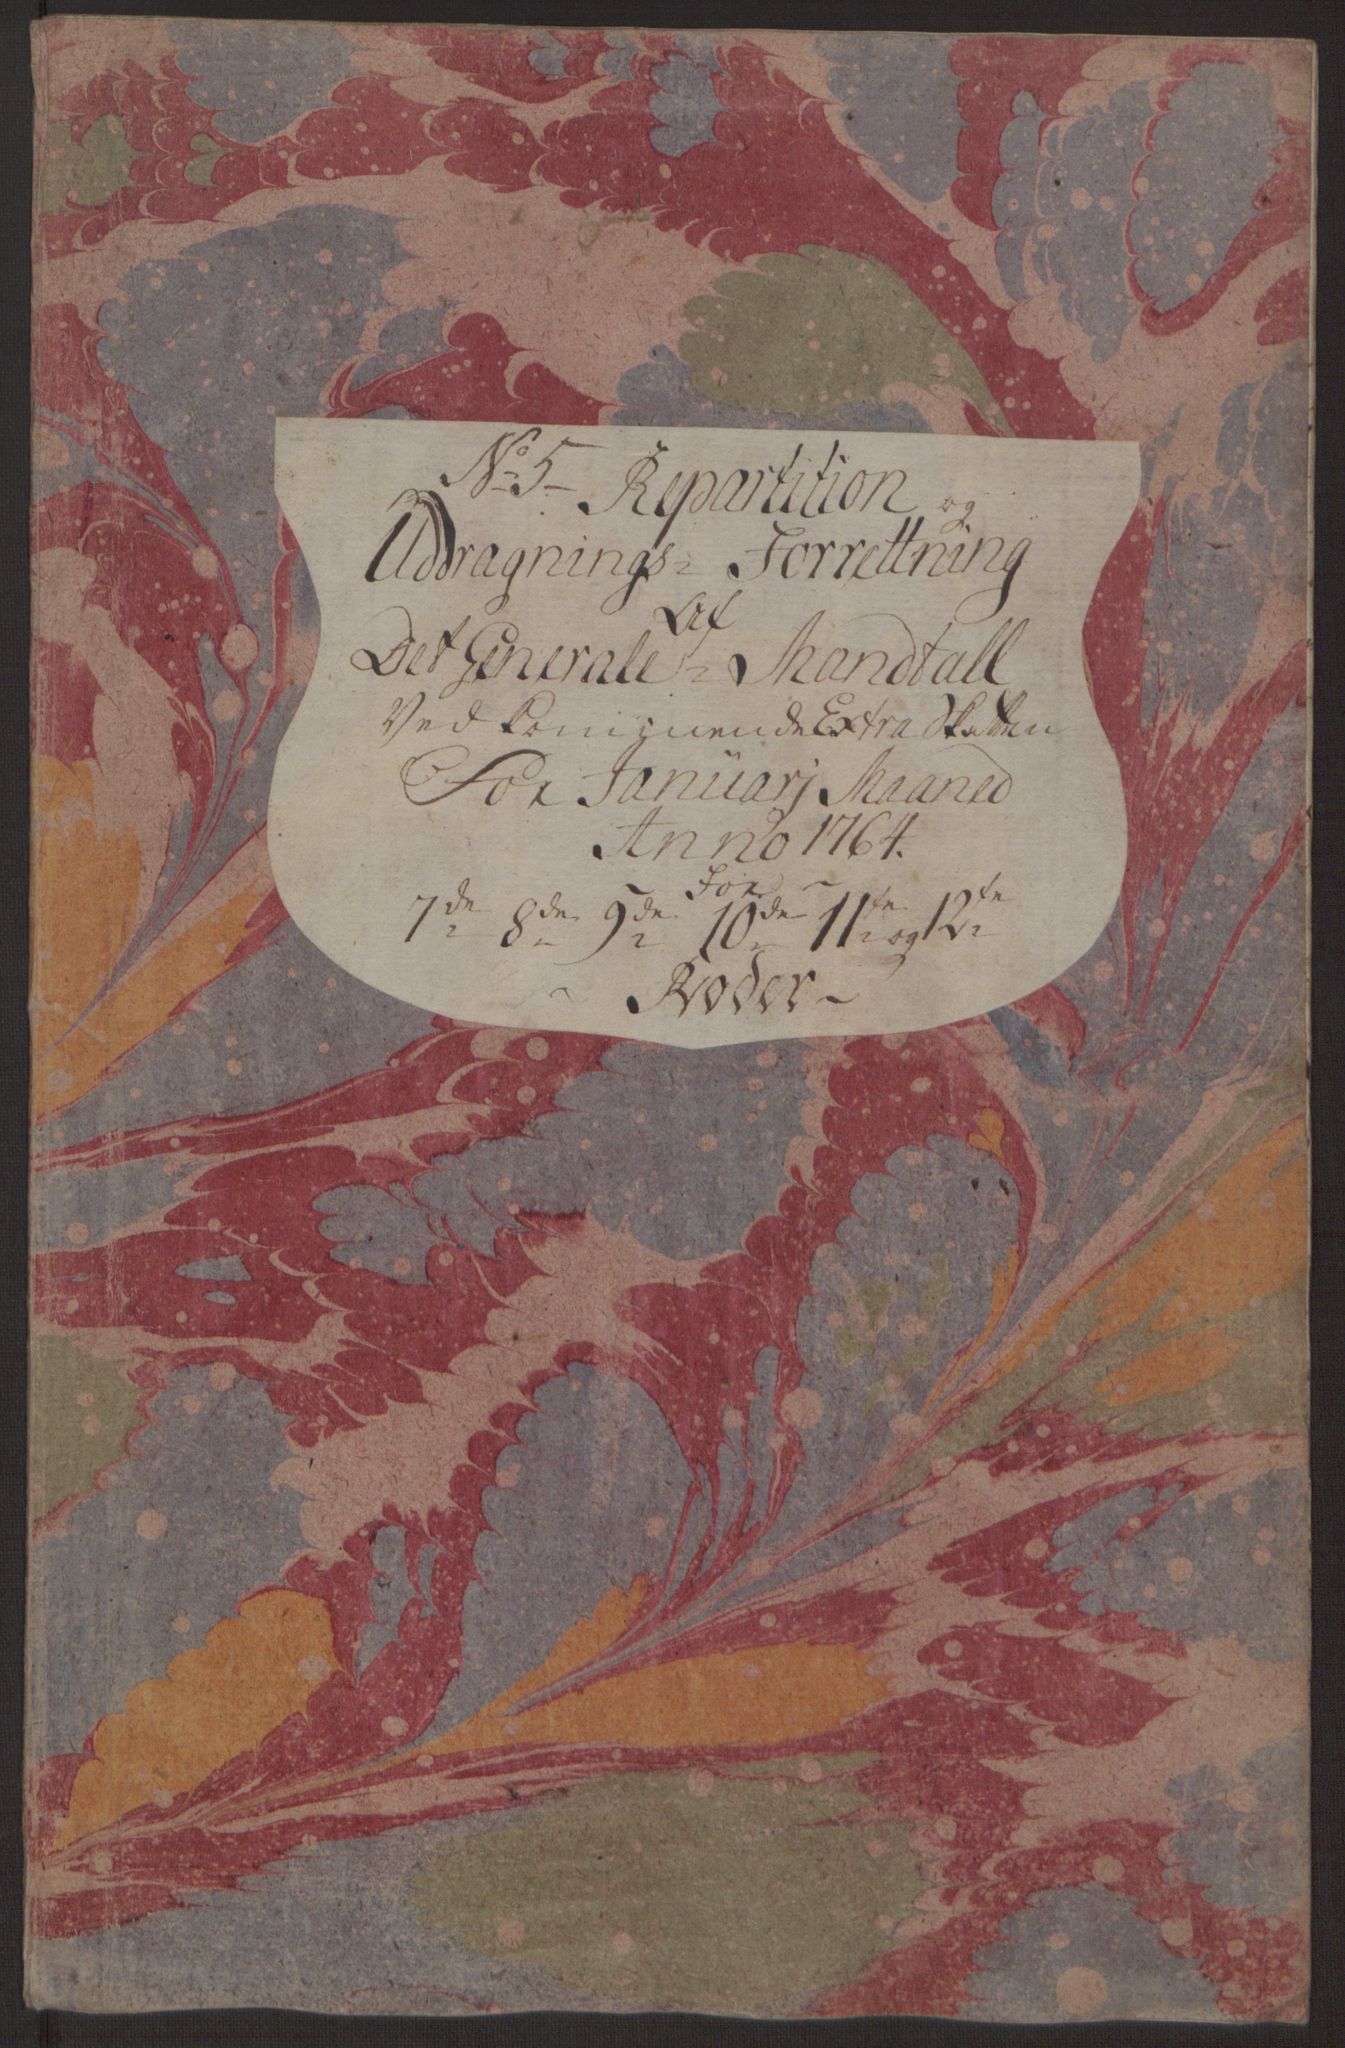 No 5 Repartition og
Uddragnings- Forrettning
Af
Det Generale- Mandtall
Ved kommende Extra Skatten
For Januarj Maaned
Anno 1764.
For
7de 8de 9de 10de 11te og 12te
Roder